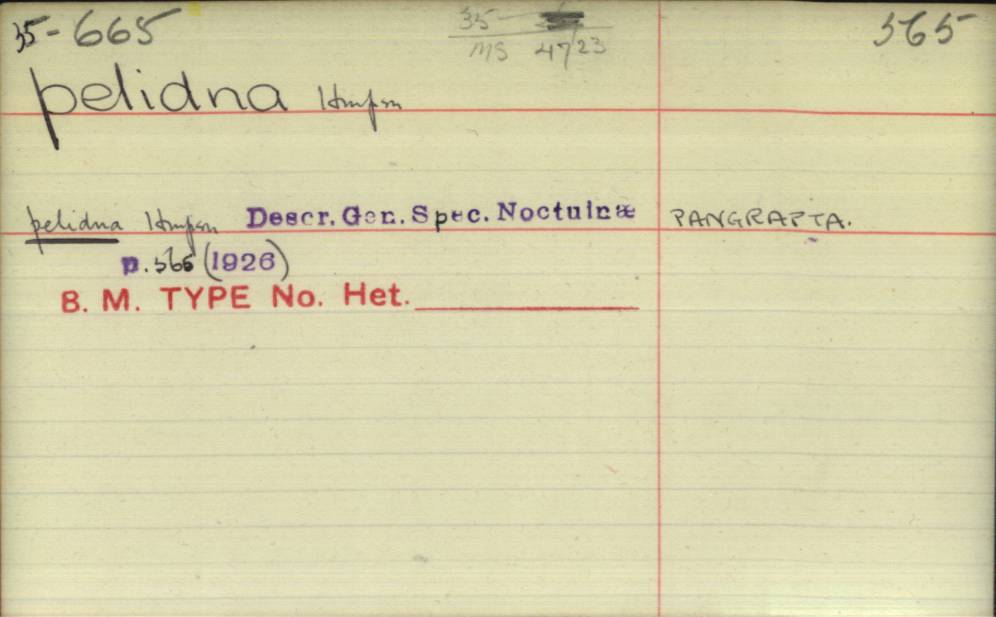 35-665
35
565
MS 47/23
pelidna Hmpsn
pelidna Hmpsn Descr. Gen. Spec. Noctuinæ PANGRAPTA.
p. 365 (1926)
B. M. TYPE No. Het.